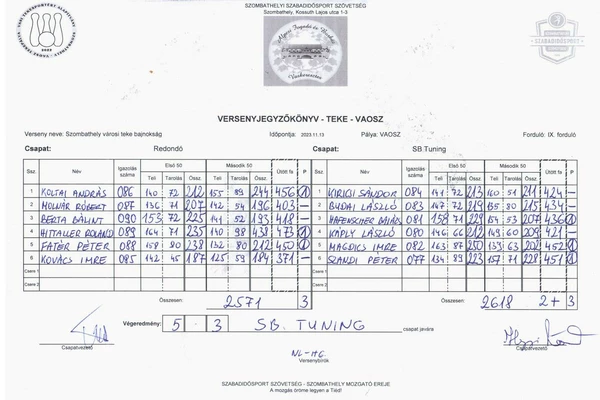 SZOMBATHELYI SZABADIDŐSPORT SZÖVETSÉG
Szombathely, Kossuth Lajos utca 1-3
VERSENYJEGYZŐKÖNYV - TEKE - VAOSZ
Verseny neve: Szombathely városi teke bajnokság Időpontja: 2023.11.13 Pálya: VAOSZ Forduló: IX. forduló
Csapat: Redondó Csapat: SB.Tuning
Ssz. Név Igazolás száma Első 50 Második 50 Ütött fa P Ssz. Név Igazolás száma Első 50 Második 50 Ütött fa P
Teli Tarolás Össz. Teli Tarolás Össz. Teli Tarolás Össz. Teli Tarolás Össz.
1 KOLTAI ANDRÁS 086 140 72 212 155 89 244 456 1 1 KIRICSI SÁNDOR 084 141 72 213 160 51 211 424 —
2 MOLNÁR RÓBERT 087 136 71 207 142 54 196 403 — 2 BUDAI LÁSZLÓ 083 147 72 219 135 80 215 434
3 BERTA BÁLINT 090 153 72 225 141 52 193 418 — 3 081 158 71 229 154 53 207 436 1
4 HITALLER ROLAND 089 164 71 235 140 98 238 473 1 4 KÁPLY LÁSZLÓ 080 146 66 212 149 60 209 421 —
5 FATÉR PÉTER 088 158 80 238 132 80 212 450 5 MAGDICS IMRE 082 163 87 250 139 63 202 452 1
6 KOVÁCS IMRE 085 142 45 187 125 59 184 371 — 6 SZANDI PÉTER 077 134 89 223 157 71 228 451 1
Csere 1 Csere 1
Csere 2 Csere 2
Összesen: 2571 3 Összesen: 2618 2+3
Végeredmény: 5 : 3 SB. TUNING csapat javára
Csapatvezető Csapatvezető
NL-HG.
Versenybírók
SZABADIDŐSPORT SZÖVETSÉG - SZOMBATHELY MOZGATÓ EREJE
A mozgás öröme legyen a Tiéd!